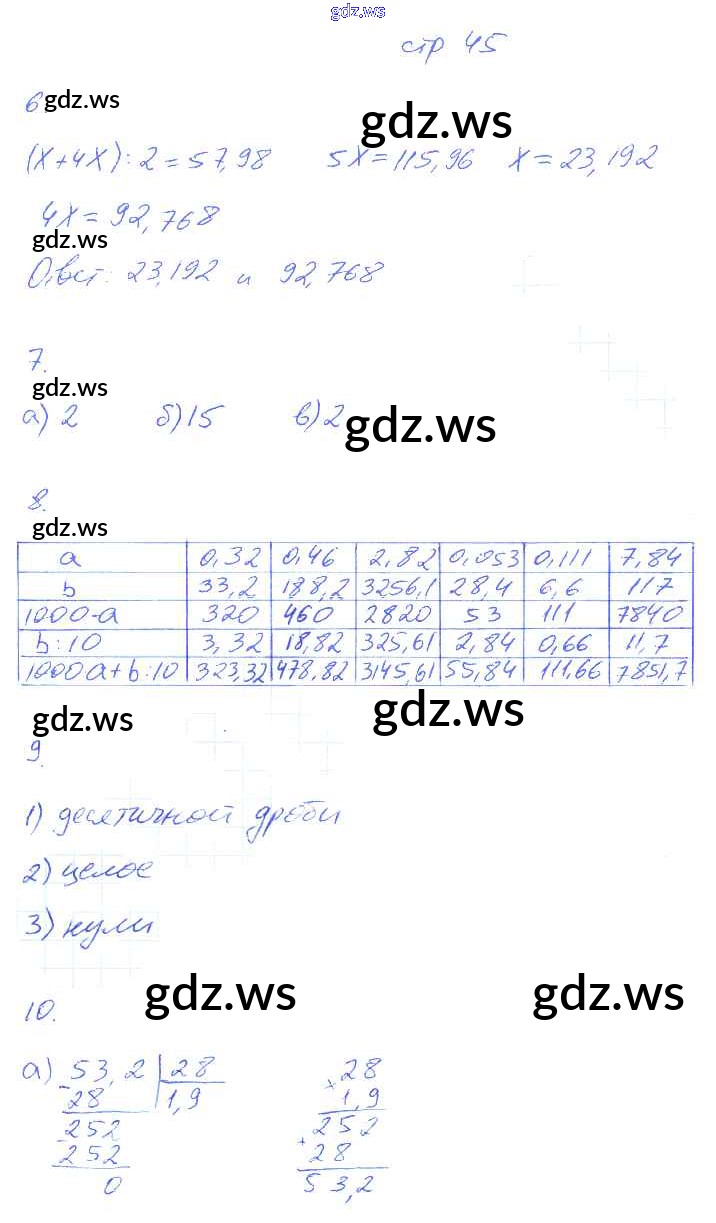 gdz.ws
стр 45
6 gdz.ws
gdz.ws
(x+4x):2=57,98 5x=115,96 x=23,192
4x=92,768
gdz.ws
Ответ: 23,192 и 92,768
7.
gdz.ws
а) 2 б) 15 в) 2
gdz.ws
8.
gdz.ws
a 0,32 0,46 2,82 0,053 0,111 7,84
b 33,2 188,2 3256,1 28,4 6,6 117
1000·a 320 460 2820 53 111 7840
b:10 3,32 18,82 325,61 2,84 0,66 11,7
1000a+b:10 323,32 478,82 3145,61 55,84 111,66 7851,7
gdz.ws gdz.ws
9.
1) десятичной дроби
2) целое
3) нули
gdz.ws gdz.ws
10.
а) 53,2 | 28 28
- 28 1,9 × 1,9
252 252
- 252 + 28
0 53,2